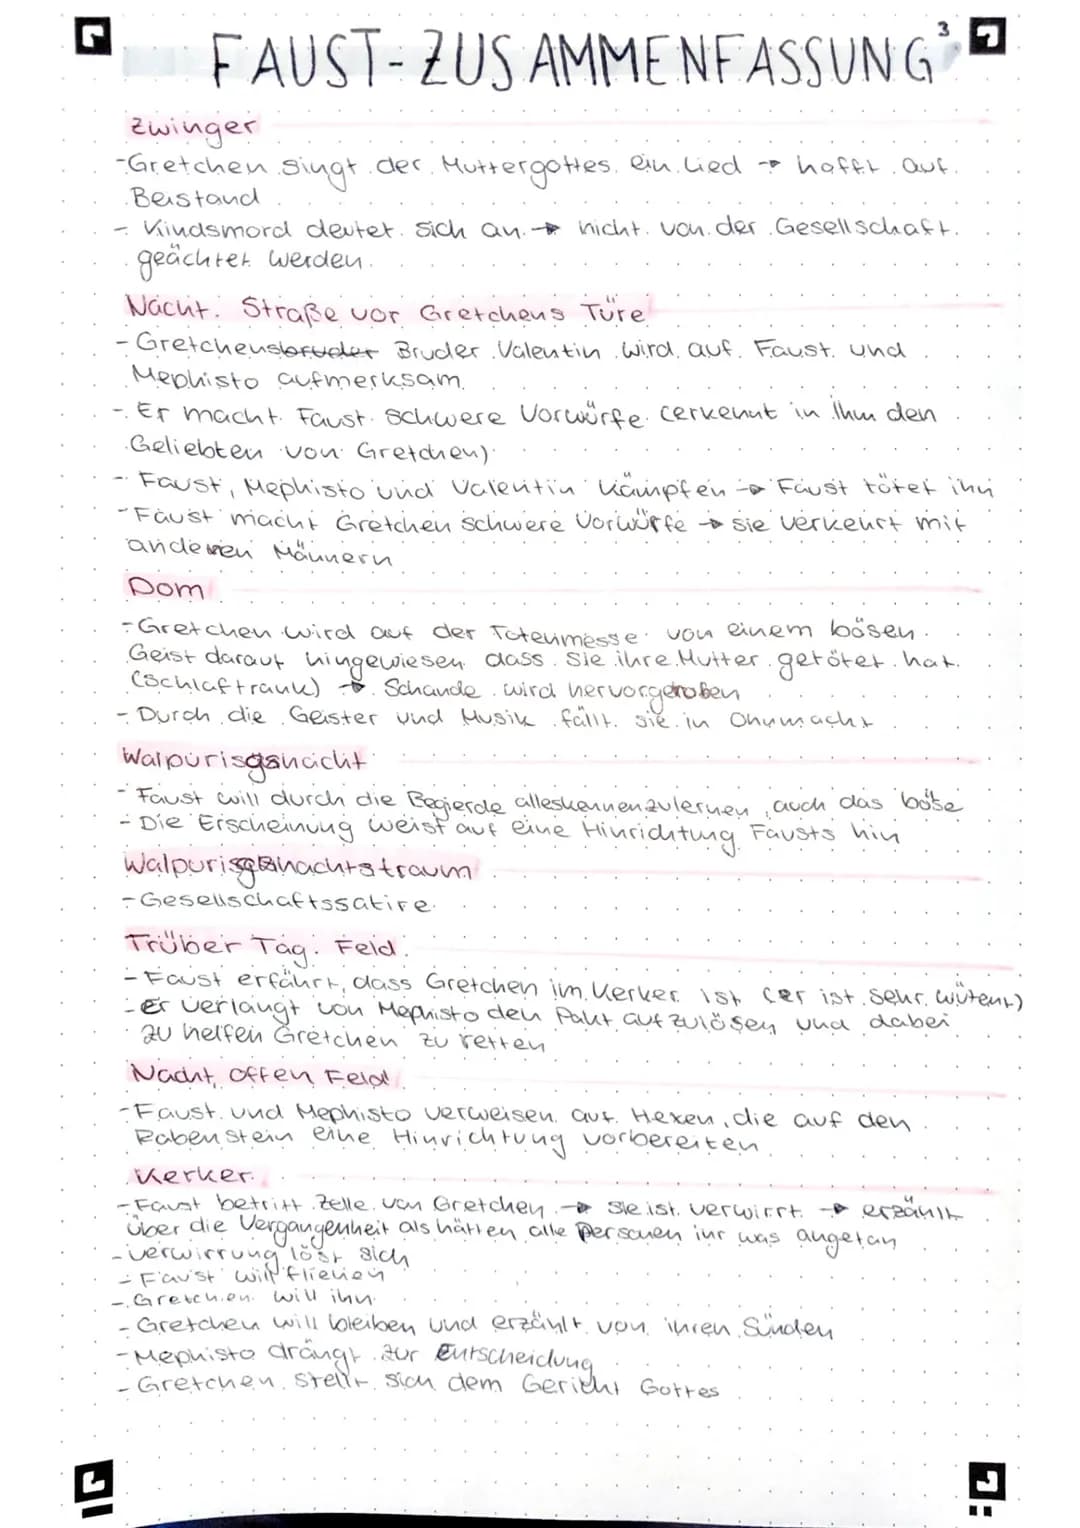 FAUST-ZUSAMMENFASSUNG³
Zwinger
-Gretchen singt der Muttergottes ein Lied → hofft auf
Beistand
- Kindsmord deutet sich an → nicht von der Gesellschaft
geächtet werden
Nacht. Straße vor Gretchens Türe
-Gretchensbruder Bruder Valentin wird auf Faust und
Mephisto aufmerksam
- Er macht Faust schwere Vorwürfe (erkennt in ihm den
Geliebten von Gretchen)
- Faust, Mephisto und Valentin kämpfen → Faust tötet ihn
- Faust macht Gretchen schwere Vorwürfe → sie verkehrt mit
anderen Männern
Dom
-Gretchen wird auf der Totenmesse von einem bösen
Geist darauf hingewiesen dass sie ihre Mutter getötet hat
(Schlaftrank) → Schande wird hervorgehoben
- Durch die Geister und Musik fällt sie in Ohnmacht
Walpurisgsnacht
- Faust will durch die Begierde alleskennenzulernen, auch das böse
- Die Erscheinung weist auf eine Hinrichtung Fausts hin
Walpurisgsnachtstraum
-Gesellschaftssatire
Trüber Tag. Feld.
- Faust erfährt, dass Gretchen im Kerker ist (er ist sehr wütent)
- Er verlangt von Mephisto den Pakt aufzulösen und dabei
zu helfen Gretchen zu retten
Nacht, offen Feld
-Faust und Mephisto verweisen auf Hexen, die auf den
Rabenstein eine Hinrichtung vorbereiten
Kerker
-Faust betritt Zelle von Gretchen → sie ist verwirrt → erzählt
über die Vergangenheit als hätten alle Personen ihr was angetan
-Verwirrung löst sich
- Faust will fliehen
- Gretchen will ihn
- Gretchen will bleiben und erzählt von ihren Sünden
-Mephisto drängt zur Entscheidung
- Gretchen stellt sich dem Gericht Gottes